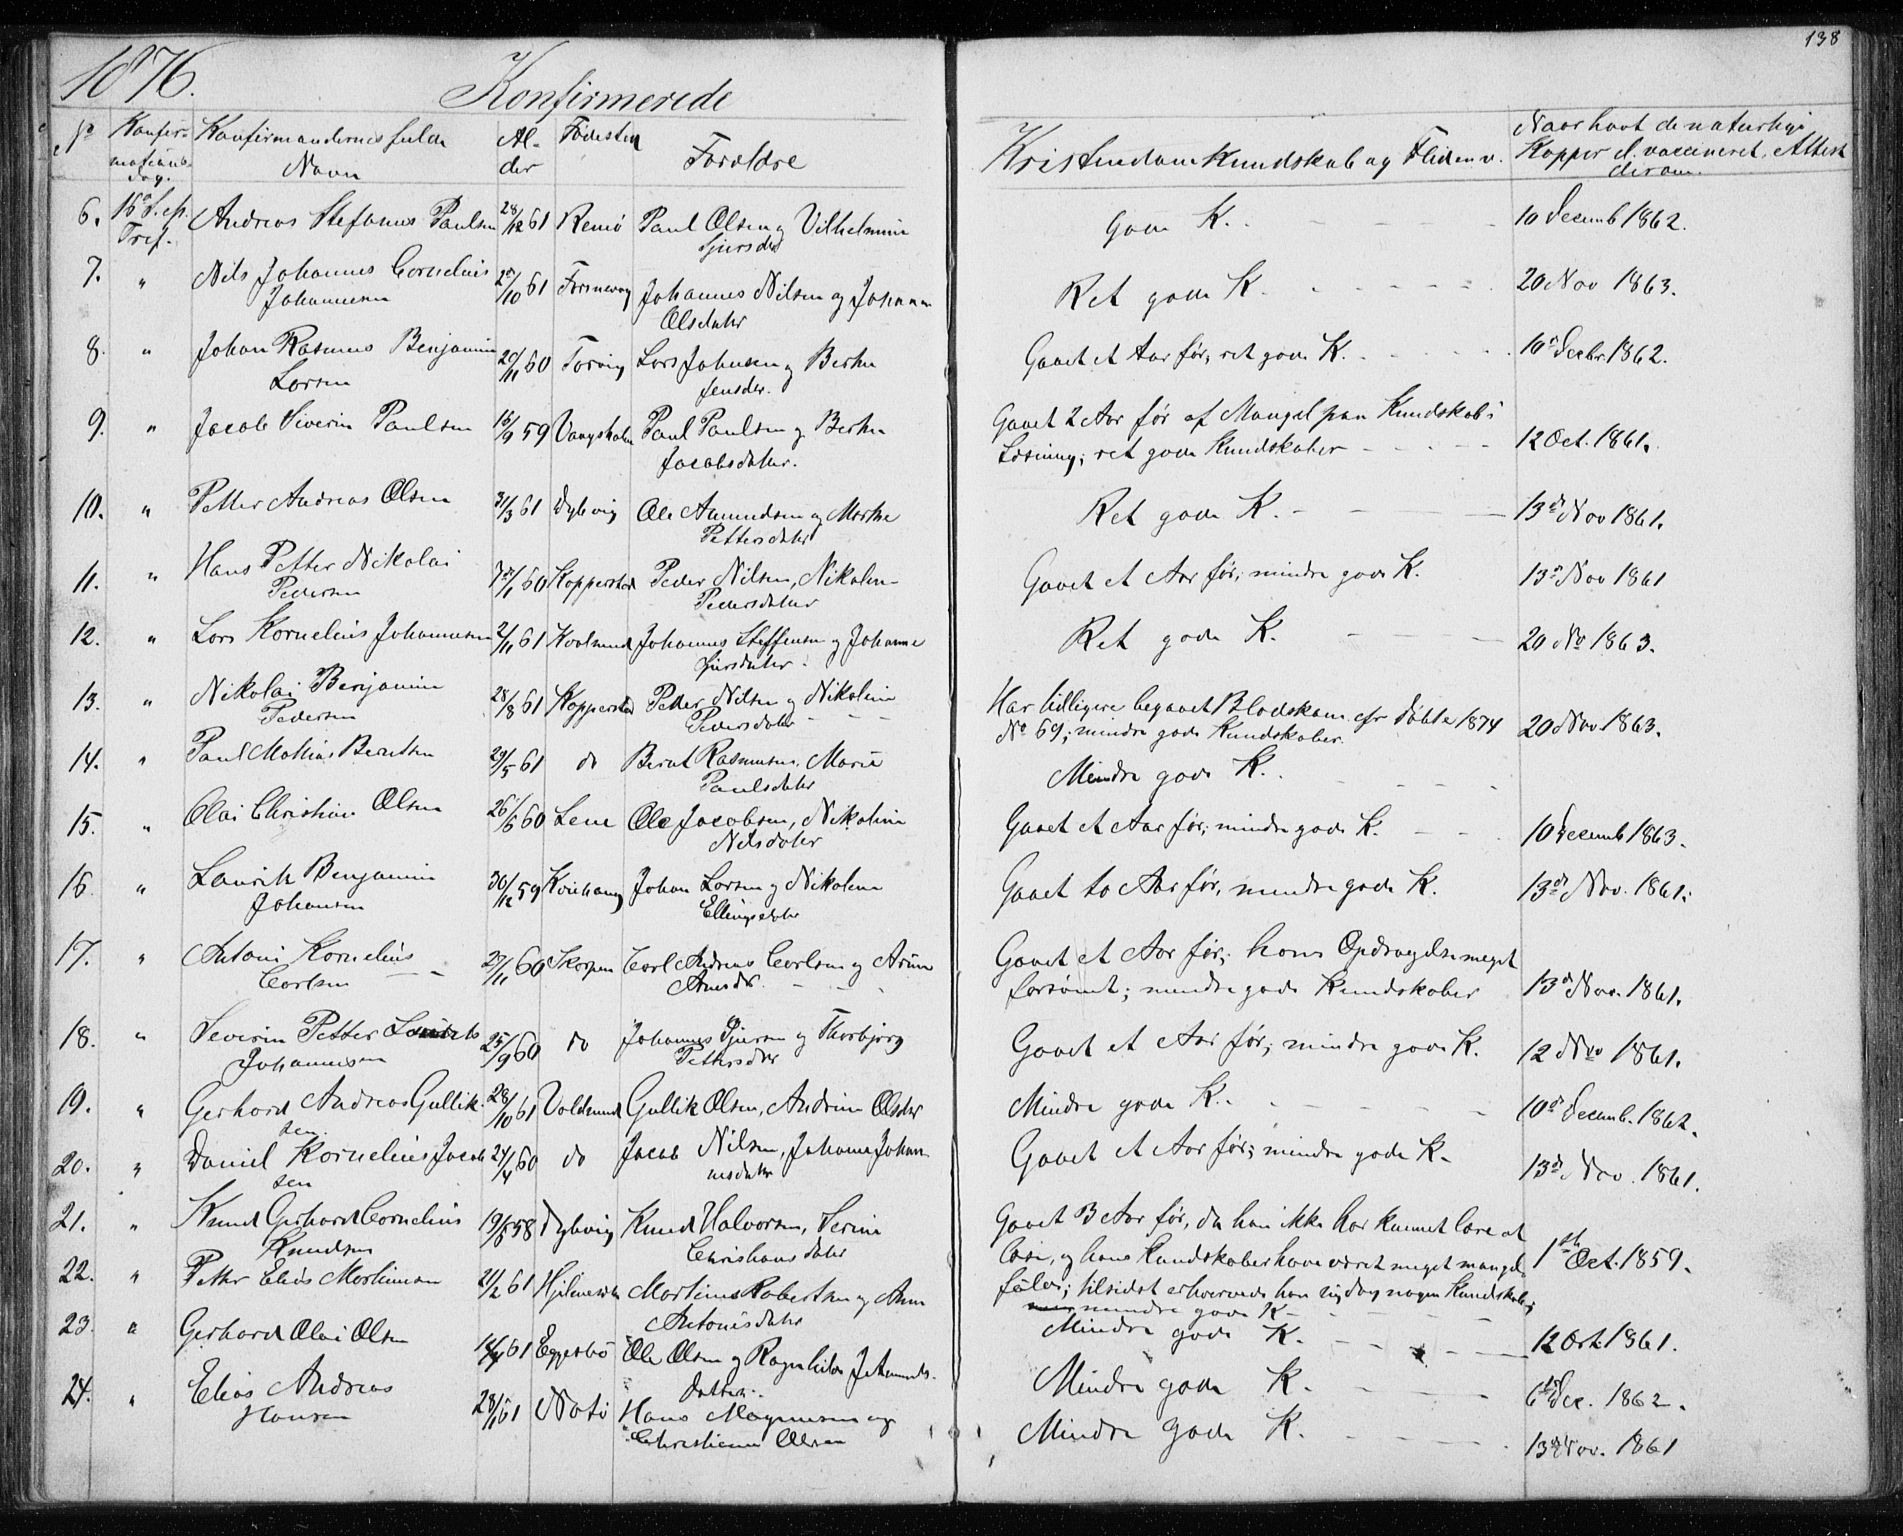 138
1876.
Konfirmerede
No
Konfir-
mations
dag.
Konfirmandernes fulde
Navn
Al-
der
Fødested
Forældre
Kristendomskundskab og Flid m. v.
Naar havt de naturlige
Kopper el. vaccineret, Attest
derom.
6. 16de S. ef. Andreas Stefanus Paulsen 28/12 61 Remö Paul Olsen og Vilhelmine gode K. 10 Decemb 1862.
Tref. Sjursdtr
7. " Nils Johannes Cornelius /10 61 Johannes Nilsen og Johanna Ret gode K. 20 Nov 1863.
Johannesen Olsdatter
8. " Johan Rasmus Benjamin 20/11 60 Torvig Lars Johnsen og Berthe Gaaet et Aar før; ret gode K. 10de Decbr 1862.
Larsen Jensdtr.
9. " Jacob Siverin Paulsen 16/9 59 Vaagsholm Paul Paulsen og Berthe Gaaet 2 Aar før af Mangel paa Kundskab i
Jacobsdatter. Læsning; ret gode Kundskaber 12 Oct. 1861.
10. " Petter Andreas Olsen 31/3 61 Dybvig Ole Amundsen og Marthe Ret gode K. 13de Nov 1861.
Pettersdatter
11. " Hans Petter Nikolai /1 60 Kopperstad Peder Nilsen, Nikoline Gaaet et Aar før; mindre gode K. 13de Nov 1861
Pedersen Pedersdatter
12. " Lars Kornelius Johannesen 2/11 61 Johannes Steffensen og Johanne Ret gode K. 20 No 1863.
Sjursdatter.
13. " Nikolai Benjamin 28/8 61 Kopperstad Peder Nilsen og Nikoline Har tidligere begaaet Blodskam cfr Døbte 1874
Pedersen Pedersdatter No 69; mindre gode Kundskaber. 20 Nov 1863.
14. " Paul Mathias Berntsen 29/5 61 do Bernt Rasmusen, Marie Mindre gode K.
Paulsdatter
15. " Olai Christian Olsen 26/6 60 Lene Ole Jacobsen, Nikoline Gaaet et Aar før; mindre gode K. 10 Decemb 1863.
Nilsdatter
16. " Laurits Benjamin 30/12 59 Johan Larsen og Nikoline Gaaet to Aar før, mindre gode K. 13de Nov. 1861.
Johansen Ellingsdatter
17. " Antoni Kornelius 27/11 60 Skorpen Carl Andreas Carlsen og Gaaet et Aar før; hans Opdragelse meget
Carlsen Arnesdtr. forsømt; mindre gode Kundskaber 13de Nov. 1861.
18. " Severin Petter 25/9 60 do Johannes Sjursen og Thorbjørg Gaaet et Aar før; mindre gode K. 12 Nov 1861.
Johannesen Pettersdtr
19. " Gerhard Andreas Gullik- 28/10 61 Voldsund Gullik Olsen, Andrine Olsdtr Mindre gode K. 10de Decemb. 1862.
sen.
20. " Daniel Kornelius Jacob- 24/4 60 do Jacob Nilsen, Johanne Johan- Gaaet et Aar før; mindre gode K. 13de Nov. 1861.
sen nesdatter
21. " Knud Gerhard Cornelius 19/8 58 Dybvig Knud Halvorsen, Serine Gaaet 3 Aar før, da han ikke har kunnet lære at
Knudsen Christiansdatter læse, og hans Kundskaber have været meget mangel- 1ste Oct. 1859.
22. " Petter Elias Martinusen 21/2 61 Martinus Robertsen og Anne fulde; tilsidst erhvervede han sig dog nogen Kundskab;
Antonisdatter mindre gode K
23. " Gerhard Olai Olsen 61 Eggesbö Ole Olsen og Ragnhilde Johannes- Mindre gode K. 12 Oct. 1861.
datter.
24. " Elias Andreas 28/11 61 Notö Hans Magnusen og Mindre gode K. 6te Dec. 1862.
Hansen Christianne Olsen Mindre gode K. 13de Nov. 1861